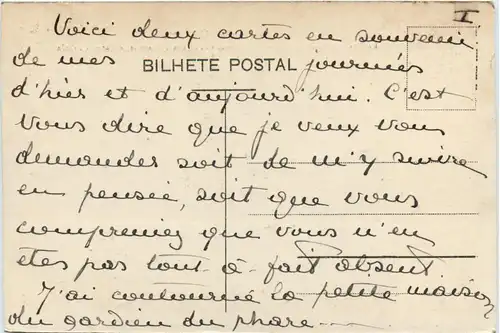 I
Voici deux cartes en souvenir
de mes journées
BILHETE POSTAL
d'hier et d'aujourd'hui. C'est
vous dire que je veux vous
demander soit de m'y suivre
en pensée, soit que vous
compreniez que vous n'en
êtes pas tout-à-fait absent.
J'ai contourné la petite maison
du gardien du phare